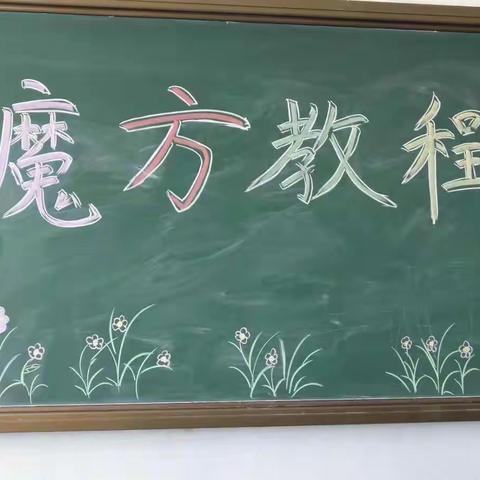 魔方教程